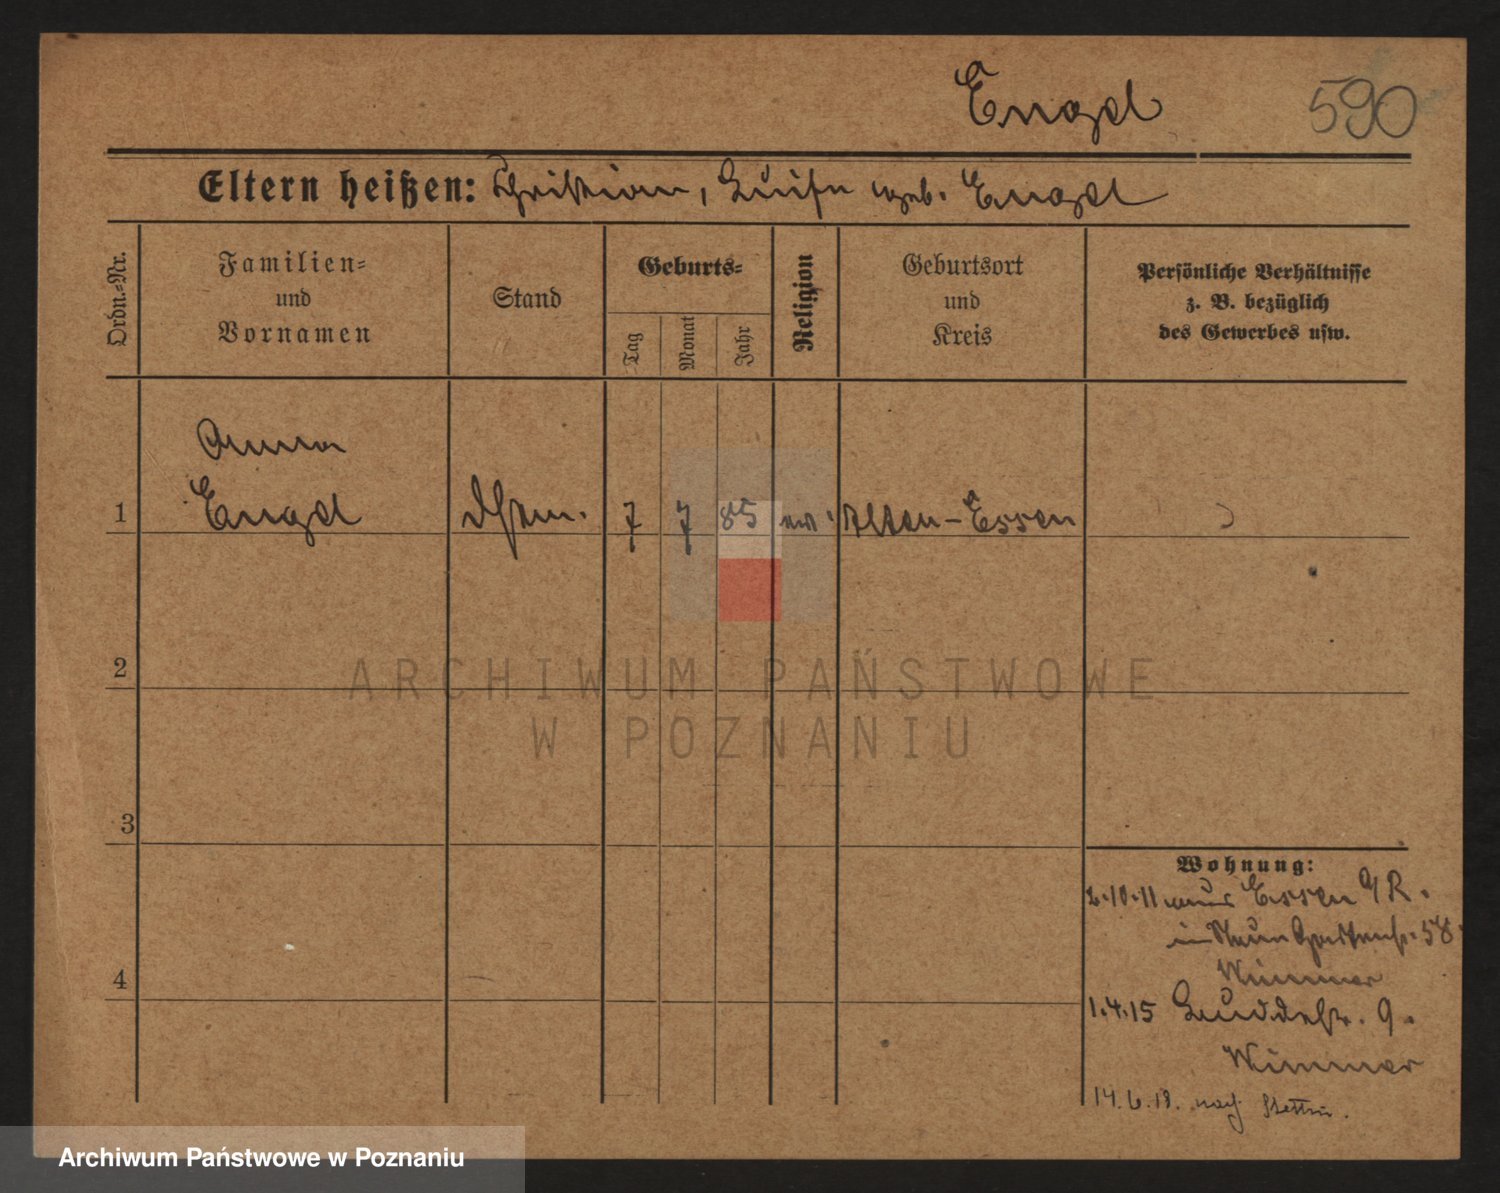 Engel 590
Eltern heißen: Christian, Luise geb. Engel
Ordn.-Nr.
Familien- und Vornamen
Stand
Geburts-
Tag
Monat
Jahr
Religion
Geburtsort und Kreis
Persönliche Verhältnisse
z. B. bezüglich
des Gewerbes usw.
Anna
1 Engel 7 7 85 ev. Alten-Essen
2
3
4
Wohnung:
2.10.11 aus Essen a/R.
58
Wimmer
1.4.15 9.
Wimmer
14.6.18. nach Stettin.
ARCHIWUM PAŃSTWOWE
W POZNANIU
Archiwum Państwowe w Poznaniu